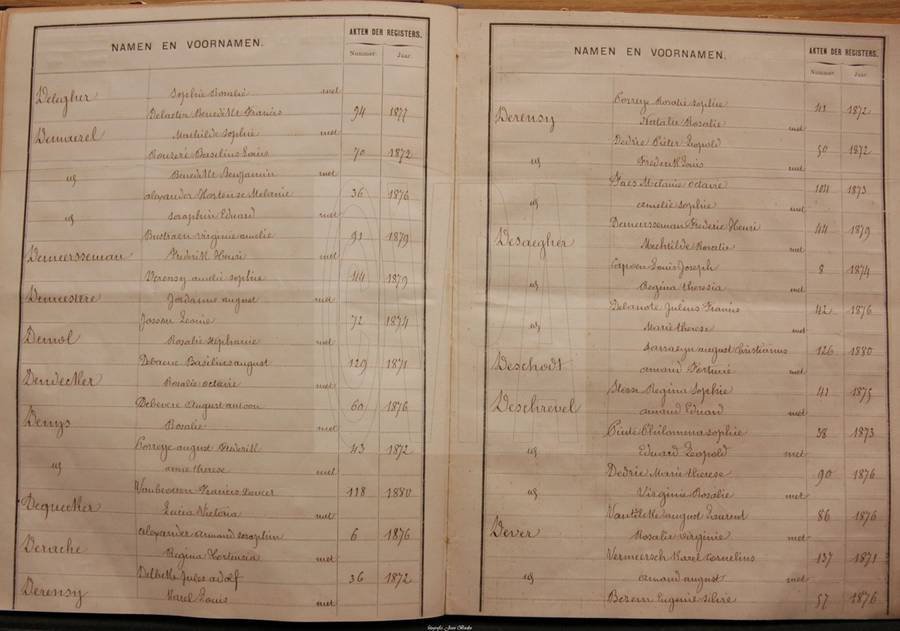 NAMEN EN VOORNAMEN.
AKTEN DER REGISTERS.
Nummer. Jaar.
Sophie Rosalie met
Delacter Benedikte Francis 94 1877
Demaerel Mathilde Sophie met
Rousere Basilius Louis 70 1872
id Benedikte Benjamin met
Alexander Hortense Melanie 36 1876
id Seraphin Eduard met
Bustraen Virginie Amelie 91 1879
Demeersseman Frederik Henri met
Derensy Amelie Sophie 44 1879
Demeestere Jordanne August met
Josson Leonie 72 1874
Demol Rosalie Stephanie met
Debaene Basilius August 129 1871
Rosalie Octavie met
Debevere August Antoon 60 1876
Denys Rosalie met
Correye August Frederik 43 1872
id Anne Therese met
Vanbesien Francis 118 1880
Dequecker Lucia Victoria met
Alexander Armand Seraphin 6 1876
Derache Regina Hortensia met
Delbeke Jules Adolf 36 1872
Derensy Karel Louis met
NAMEN EN VOORNAMEN.
AKTEN DER REGISTERS.
Nummer. Jaar.
Correye Rosalie Sophie 41 1872
Derensy Natalie Rosalie met
Dedrie Pieter Leopold 50 1872
id Frederik Louis met
Faes Melanie Octavie 1873
id Amelie Sophie met
Demeersseman Frederic Henri 44 1879
Desaegher Mechtilde Rosalie met
Capoen Louis Joseph 8 1874
id Regina Theresia met
Delanote Julius Francis 42 1876
id Marie Therese met
Sarrasyn August Christianus 126 1880
Deschodt Armand Fortuné met
Stessa Regina Sophie 41 1875
Deschrevel Amand Eduard met
Pinte Philomena Sophie 38 1873
id Eduard Leopold met
Dedrie Marie Therese 90 1876
id Virginie Rosalie met
August Laurent 86 1876
Dever Rosalie Virginie met
Vermeersch Karel Cornelius 137 1871
id Armand August met
Bezem Eugenie Silvie 57 1876